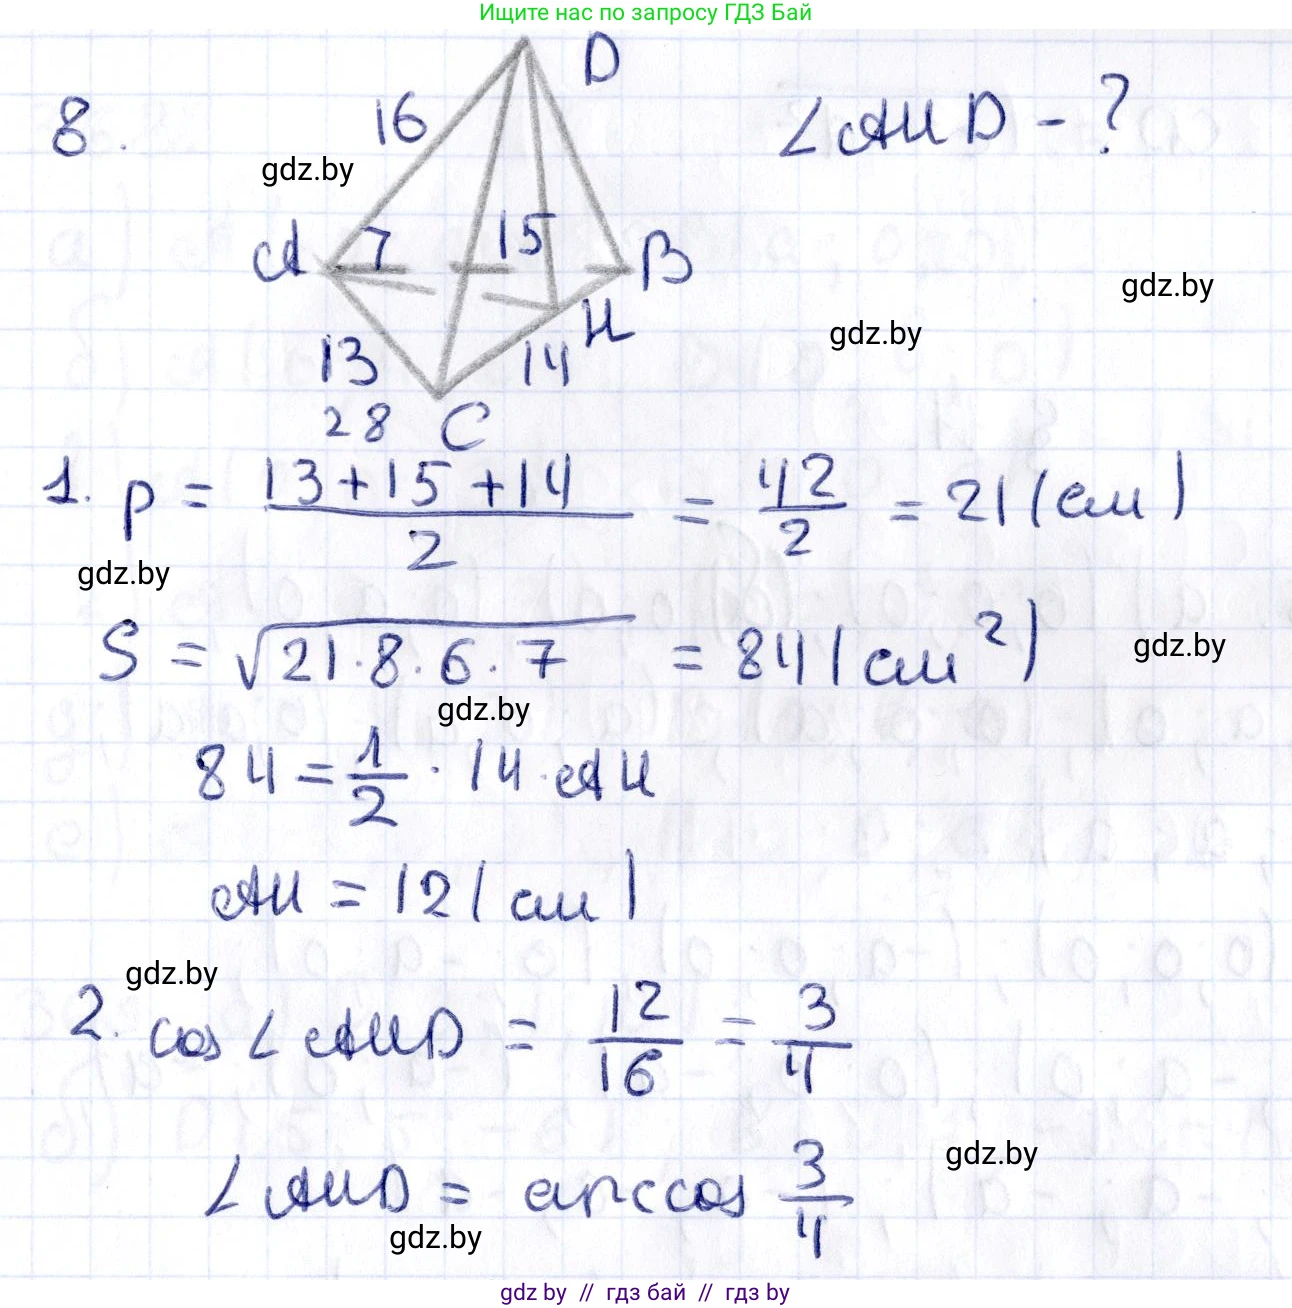 Ищите нас по запросу ГДЗ Бай
8.
16
D
∠AHD - ?
gdz.by
A
7
15
B
gdz.by
gdz.by
H
13
14
28
C
1. p = (13+15+14)/2 = 42/2 = 21 (см)
gdz.by
S = √(21·8·6·7) = 84 (см²)
gdz.by
gdz.by
84 = 1/2 · 14 · AH
AH = 12 (см)
gdz.by
2. cos ∠AHD = 12/16 = 3/4
gdz.by
∠AHD = arccos 3/4
gdz.by
gdz by // гдз бай // гдз by